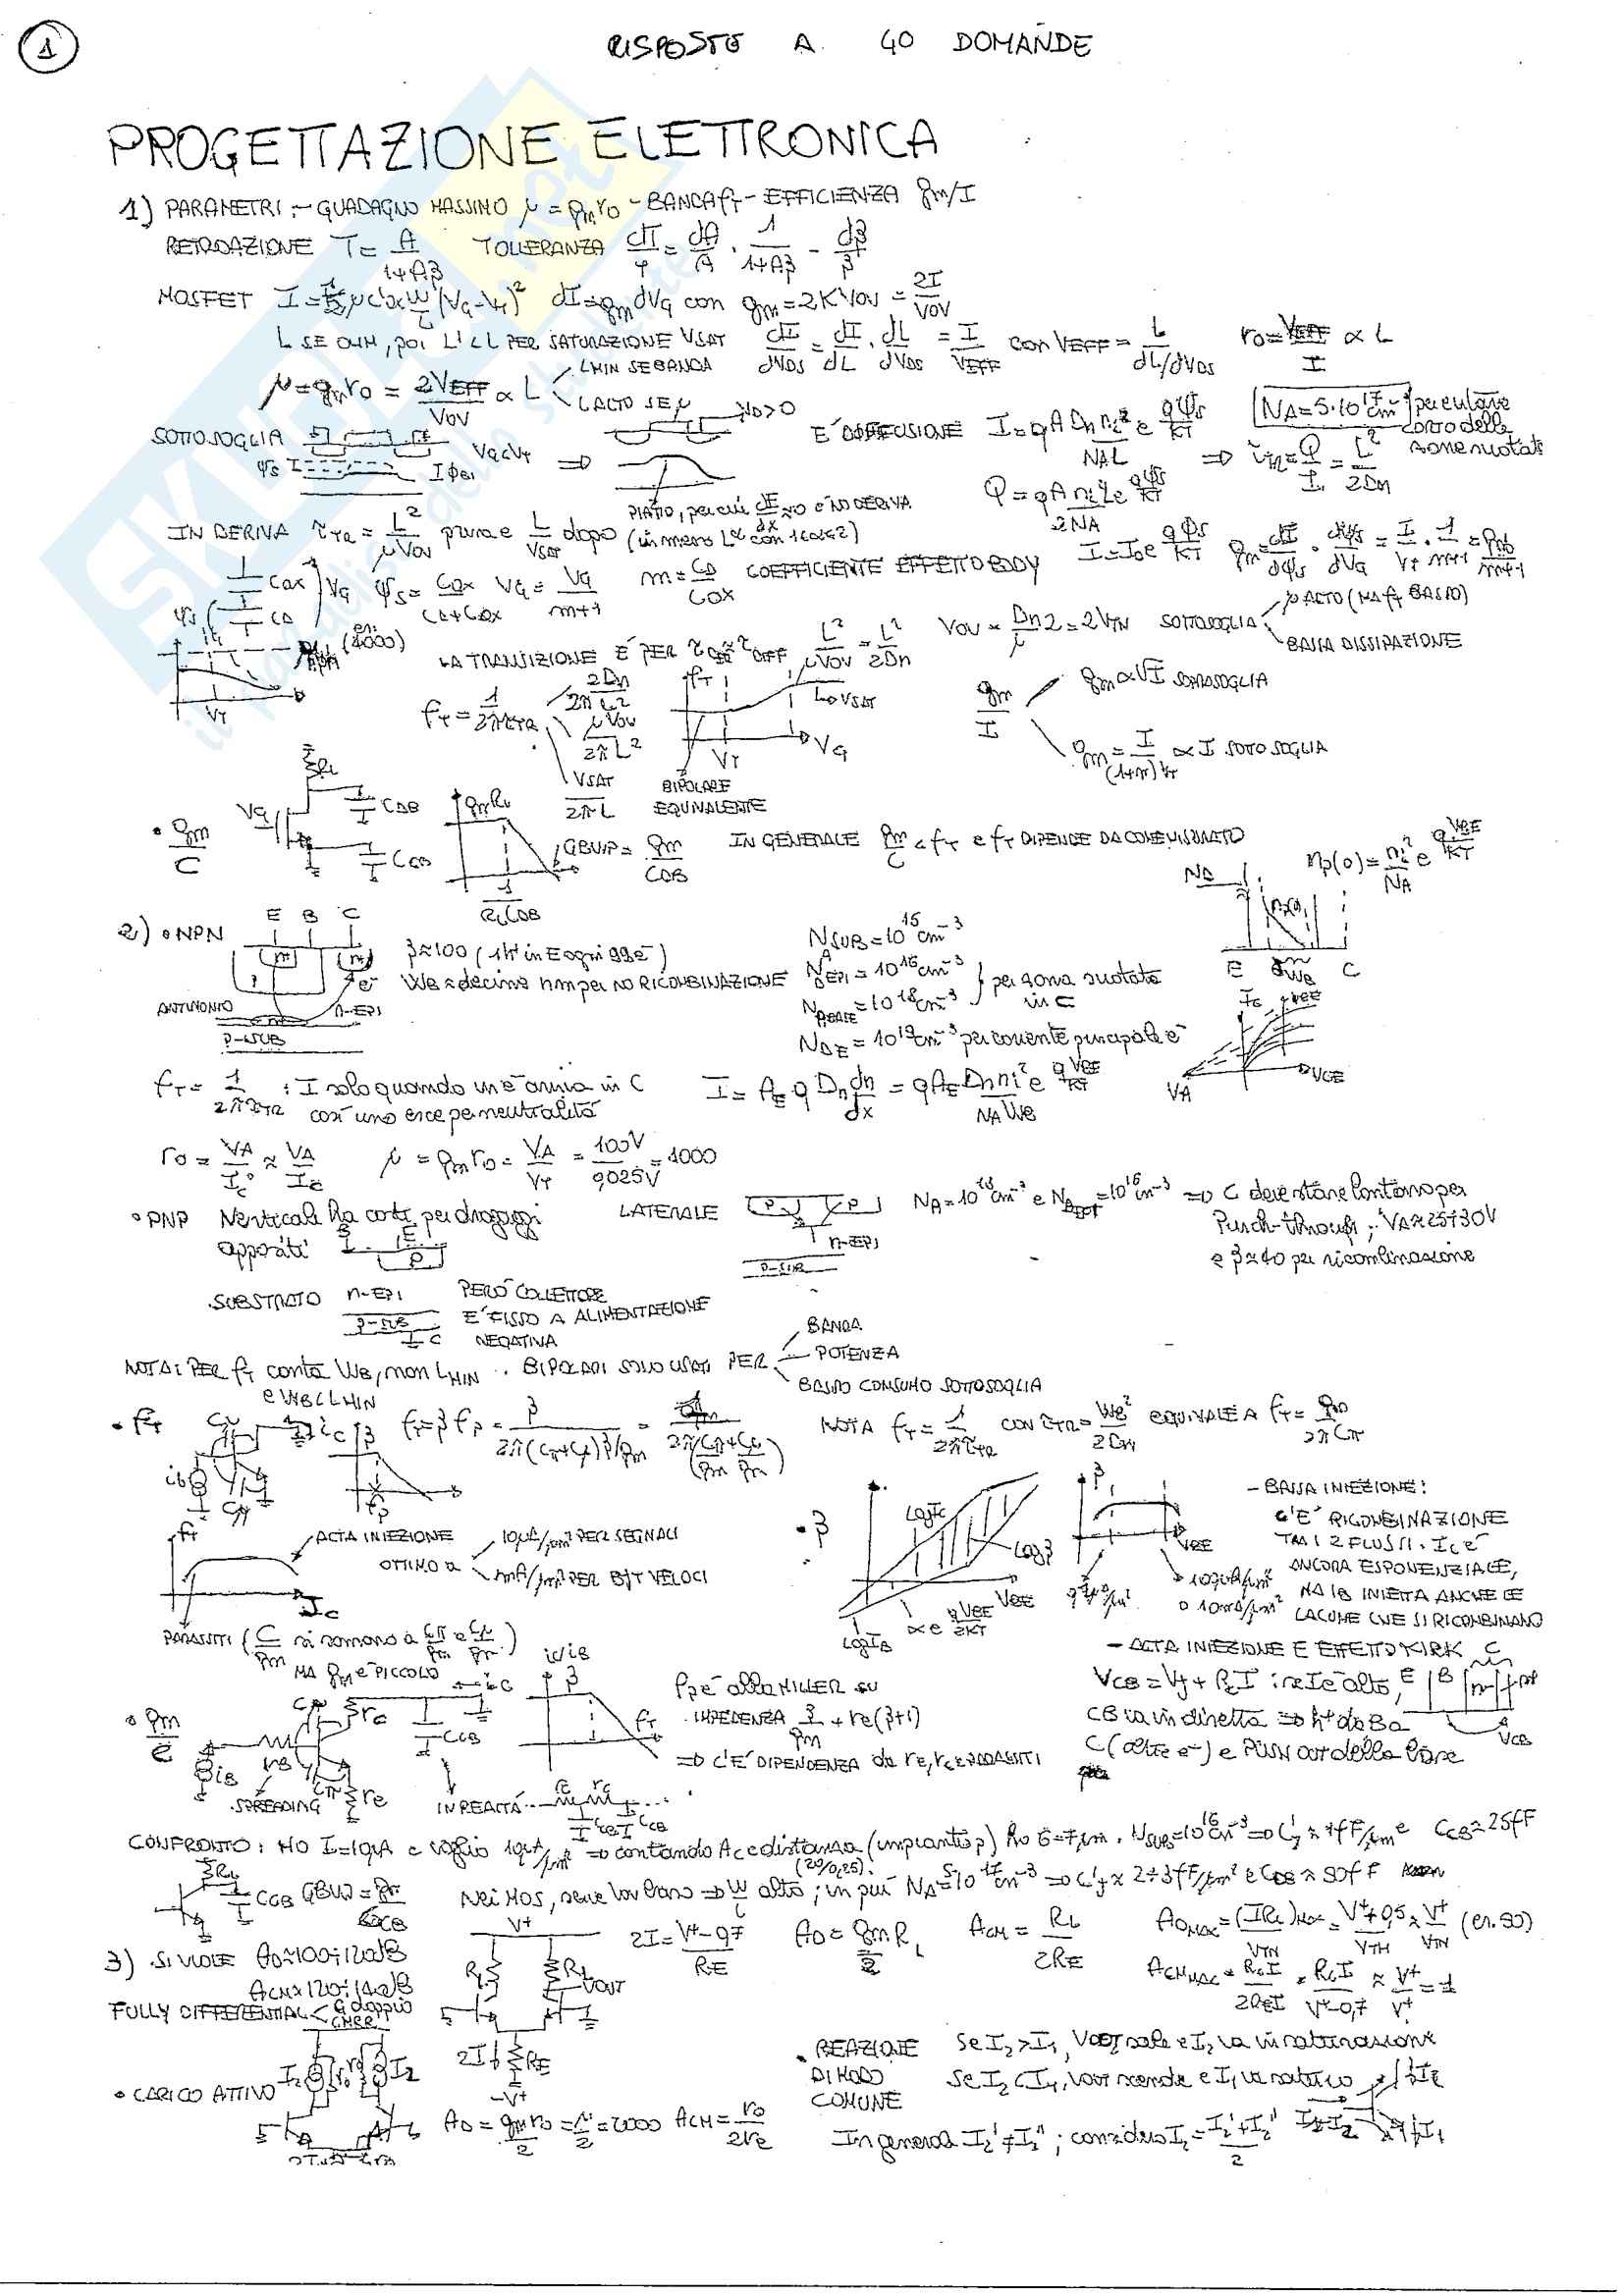 1
RISPOSTE A 40 DOMANDE
PROGETTAZIONE ELETTRONICA
1) PARAMETRI: - GUADAGNO MASSIMO μ = gm ro - BANDA fT - EFFICIENZA gm/I
RETROAZIONE T = A/(1+Aβ) TOLLERANZA dT/T = dA/A · 1/(1+Aβ) - dβ/β
MOSFET I = 1/2 μ C'ox W/L (VG-VT)² dI = gm dVG con gm = 2KVOV = 2I/VOV
L SE OHM, POI L' < L PER SATURAZIONE VSAT dI/dVDS = dI/dL · dL/dVDS = I/VEFF CON VEFF = L/(dL/dVDS) ro = VEFF/I ∝ L
μ = gm ro = 2VEFF/VOV ∝ L LMIN SE BANDA
L ALTO SE μ VD>0
SOTTOSOGLIA VG<VT ⇒ E' DIFFUSIONE I = qA Dn ni²/(NA L) e^(qψs/KT) NA = 5·10^17 cm^-3 per evitare corto delle zone svuotate
ψs
PIATTO, per cui dE/dx ≈ 0 e NO DERIVA Q = qA ni² L/(2NA) e^(qψs/KT) ⇒ τTR = Q/I = L²/2Dn
IN DERIVA τTR = L²/μVOV prima e L/VSAT dopo (in mezzo L^α con 1<α<2)
Cox VG ψs = Cox/(CD+Cox) VG = VG/(m+1) m = CD/Cox COEFFICIENTE EFFETTO BODY I = Io e^(qψs/KT) gm = dI/dψs · dψs/dVG = I/VT · 1/(m+1) = gmb/(m+1)
ψs CD
es. (4000)
VT
LA TRANSIZIONE E' PER τDER ≈ τDIFF L²/μVOV = L²/2Dn VOV = Dn/μ 2 = 2VTH SOTTOSOGLIA μ ALTO (MA fT BASSO)
BASSA DISSIPAZIONE
fT = 1/2πτTR 2Dn/2πL²
μVOV/2πL²
VSAT/2πL
fT L→VSAT VT VG
BIPOLARE EQUIVALENTE
gm/I gm ∝ √I SOPRASOGLIA
gm = I/((1+m)VT) ∝ I SOTTOSOGLIA
• gm/C VG RL CDB CGB gmRL 1/RLCDB GBWP = gm/CDB IN GENERALE gm/C < fT e fT DIPENDE DA COME MISURATO np(0) = ni²/NA e^(qVBE/KT)
2) • NPN E B C
β≈100 (1h+ in E ogni 99e-) NSUB = 10^15 cm^-3
WB ≈ decine nm per NO RICOMBINAZIONE NDEPI = 10^16 cm^-3 per zona svuotata in C
ANTIMONIO n-EPI NABASE = 10^18 cm^-3
P-SUB
NDE = 10^19 cm^-3 per corrente principale e-
E WB C
IC VBE VA VCE
fT = 1/2πτTR : I solo quando un e- arriva in C così uno esce per neutralità I = AE q Dn dn/dx = qAE Dn ni²/(NA WB) e^(qVBE/KT)
ro = VA/IC° ≈ VA/IC μ = gm ro = VA/VT = 100V/0,025V = 4000
• PNP Verticale ha costi per drogaggi appositi
LATERALE P P n-EPI P-SUB NA = 10^18 cm^-3 e = 10^16 cm^-3 ⇒ C deve stare lontano per Punch-through; VA≈25÷30V
e β≈40 per ricombinazione
SUBSTRATO n-EPI P-SUB C PERO' COLLETTORE E' FISSO A ALIMENTAZIONE NEGATIVA
NOTA: PER fT conta WB, non LMIN e WB<LMIN ∴ BIPOLARI SOLO USATI PER BANDA
POTENZA
BASSO CONSUMO SOTTOSOGLIA
• fT Cμ iC β fT = β fβ = β/(2π(Cπ+Cμ)β/gm) = 1/(2π(Cπ/gm+Cμ/gm)) NOTA fT = 1/2πτTR CON τTR = WB²/2Dn EQUIVALE A fT = gm/2πCπ
ib Cπ fβ
fT ALTA INIEZIONE
OTTIMO a 10μA/μm² PER SEGNALI
mA/μm² PER BJT VELOCI
IC
PARASSITI (C/gm si sommano a Cπ/gm e Cμ/gm) MA gm E' PICCOLO
• β LogIC Logβ LogIB VBE ∝ e^(qVBE/2KT)
β VBE
100μA/μm²
10mA/μm²
- BASSA INIEZIONE:
C'E' RICOMBINAZIONE
TRA I 2 FLUSSI. IC E'
ANCORA ESPONENZIALE,
MA IB INIETTA ANCHE LE
LACUNE CHE SI RICOMBINANO
- ALTA INIEZIONE E EFFETTO KIRK
VCB = VJ + RC I : se I è alto,
CB va in diretta ⇒ h+ da B a
C (oltre e-) e PUSH OUT della base
E B C VCB
• gm/C Cμ rc iC CCB iB rB Cπ re
SPREADING
iC/iB β fT
fβ è alla MILLER su
IMPEDENZA β/gm + re(β+1)
⇒ C'E' DIPENDENZA da re, rc e PARASSITI
IN REALTA' rc rc ... CCB CCB
CONFRONTO: HO I=10μA e voglio 10μA/μm² ⇒ contando AC e distanza (impianti p) ho 6÷7μm. NSUB = 10^16 cm^-3 ⇒ C'J ≈ 1fF/μm² e CCB ≈ 25fF
RL CCB GBW = gm/CCB Nei MOS, serve W/L alto (20/0,25); in più NA = 5·10^17 cm^-3 ⇒ C'J ≈ 2÷3fF/μm² e CDB ≈ 50fF
3) SI VUOLE AD≈100÷120dB
ACM≈120÷140dB
FULLY DIFFERENTIAL < G doppio
CMRR
V+ RL RL VOUT 2I RE -V+
2I = (V+-0,7)/RE AD = gmRL/2 ACM = RL/2RE ADMAX = (IRL)MAX/VTH = (V++0,5)/VTH ≈ V+/VTH (es. 50)
ACMMAX = RLI/2REI = RLI/(V+-0,7) ≈ V+/V+ = 1
• CARICO ATTIVO I2 ro ro I2
AD = gm ro/2 = μ/2 = 2000 ACM = ro/2re
• REAZIONE DI MODO COMUNE
Se I2>I1, VOUT sale e I2 va in saturazione
Se I2<I1, VOUT scende e I1 va saturo
In generale I2' ≠ I2''; considero I2 = (I2'+I2'')/2
I2 I1